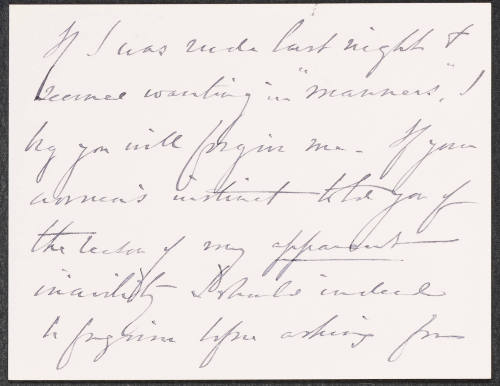 If I was rude last night &
seemed wanting in "manners", I
beg you will forgive me. If your
woman's instinct told you of
the reason of my apparent
incivility I should indeed
be forgiven before asking for